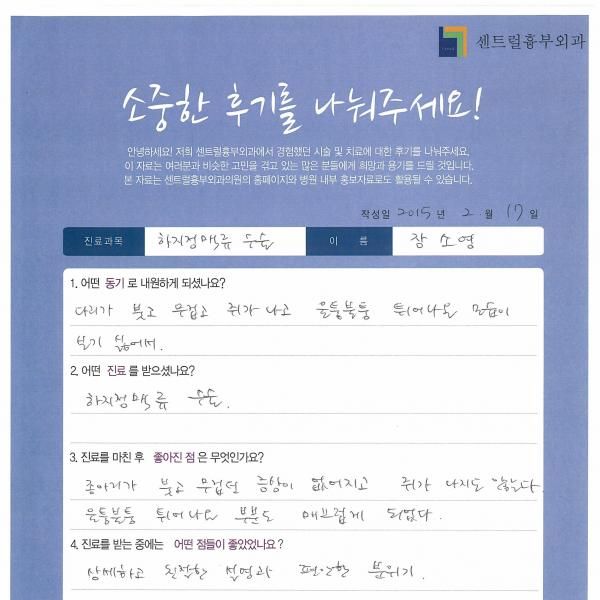 센트럴흉부외과
소중한 후기를 나눠주세요!
안녕하세요! 저희 센트럴흉부외과에서 경험했던 시술 및 치료에 대한 후기를 나눠주세요.
이 자료는 여러분과 비슷한 고민을 겪고 있는 많은 분들에게 희망과 용기를 드릴 것입니다.
본 자료는 센트럴흉부외과의원의 홈페이지와 병원 내부 홍보자료로도 활용될 수 있습니다.
작성일 2015년 2월 17일
진료과목 하지정맥류 수술 이름 장소영
1. 어떤 동기로 내원하게 되셨나요?
다리가 붓고 무겁고 쥐가 나고 울퉁불퉁 튀어나온 모습이
보기 싫어서.
2. 어떤 진료를 받으셨나요?
하지정맥류 수술.
3. 진료를 마친 후 좋아진 점은 무엇인가요?
종아리가 붓고 무겁던 증상이 없어지고 쥐가 나지도 않는다.
울퉁불퉁 튀어나온 부분도 매끄럽게 되었다.
4. 진료를 받는 중에는 어떤 점들이 좋았었나요?
상세하고 친절한 설명과 편안한 분위기.